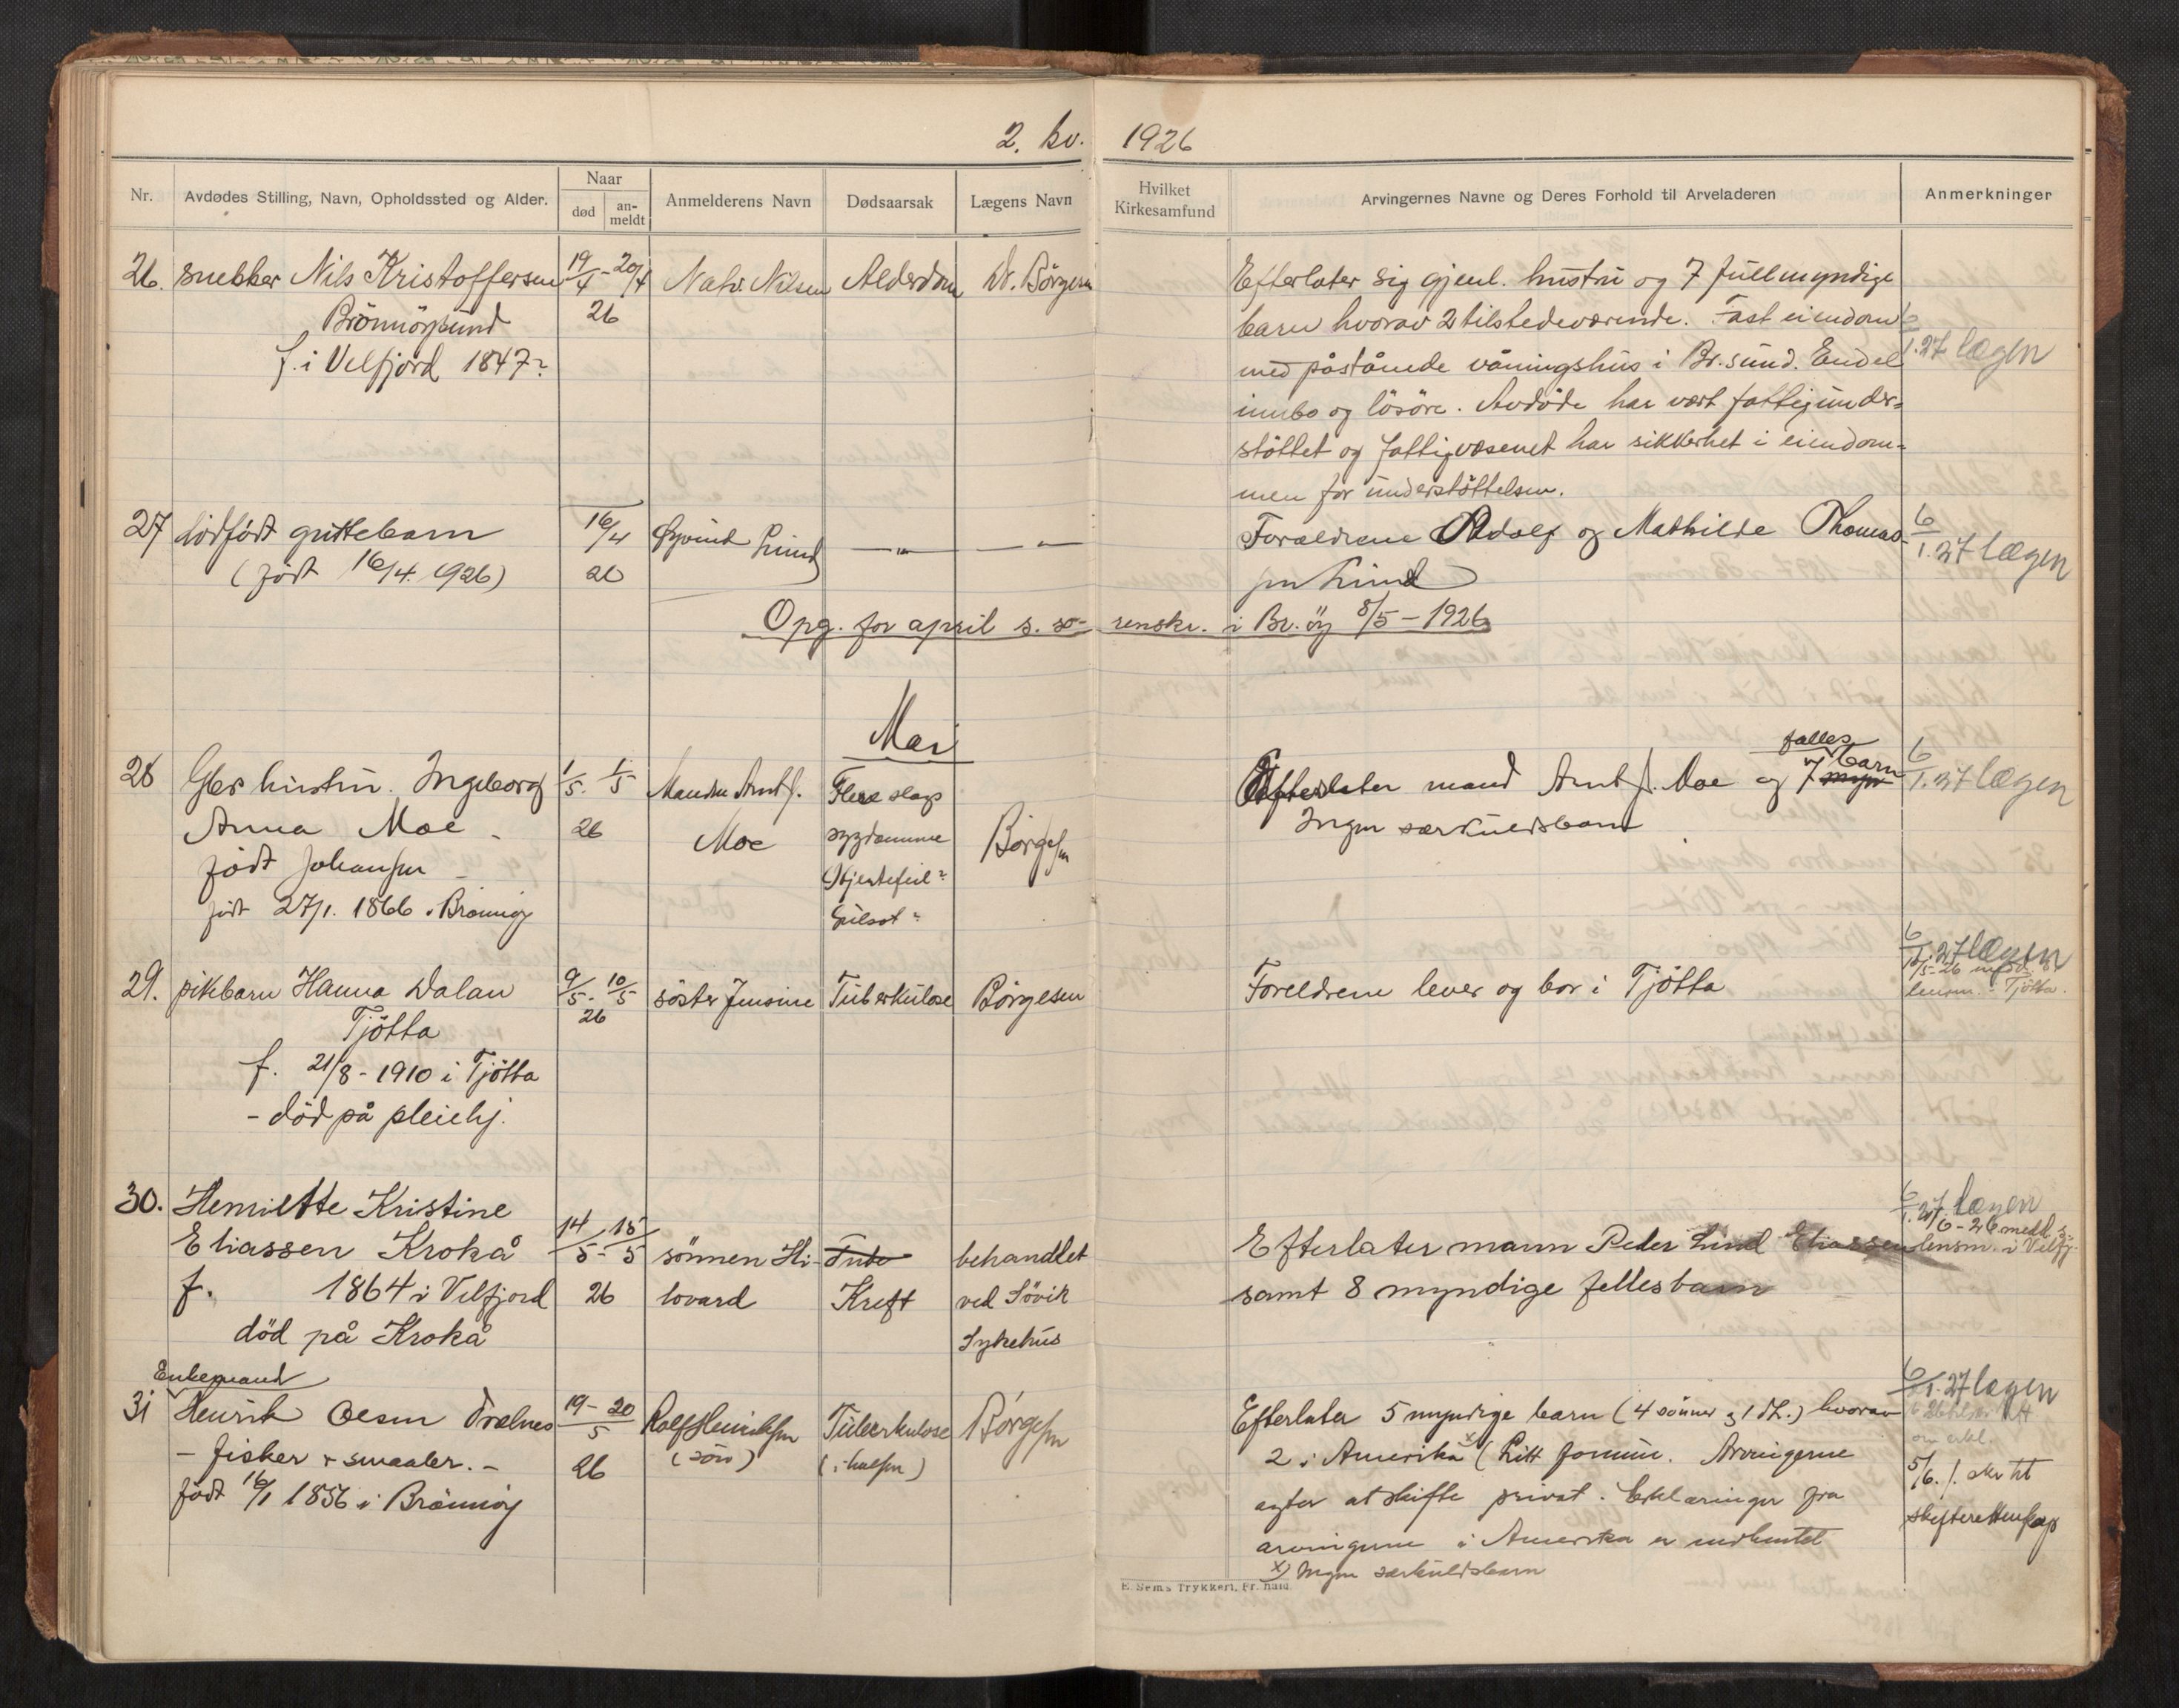 2. kv. 1926
Nr.
Avdødes Stilling, Navn, Opholdssted og Alder.
Naar
død
an-
meldt
Anmelderens Navn
Dødsaarsak
Lægens Navn
Hvilket
Kirkesamfund
Arvingernes Navne og Deres Forhold til Arveladeren
Anmerkninger
26. snekker Nils Kristoffersen 19/4 - 20/4 Nils Nilsen Alderdom Dr. Börgesen
Brönnöysund 26
f. i Velfjord 1847?
Efterlater sig gjenl. hustru og 7 fullmyndige
barn hvorav 2 tilstedeværende. Fast eiendom
med påstående våningshus i Br.sund. Endel
innbo og lösöre. Avdöde har vært fattigunder-
stöttet og fattigvæsenet har sikkerhet i eiendom-
men for understöttelsen.
6/1.27 lægen
27 dödfödt guttebarn 16/4 Øyvind Lund — " — — " —
(födt 16/4. 1926) 26
Forældrene Adolf og Mathilde Thomas-
sen Lund
6/1.27 lægen
Opg. for april s. so- renskr. i Br.öy 8/5 - 1926
Mai
28 Gbr hustru. Ingeborg 1/5. 1/5 Manden Arnt J. Flere slags
Anna Moe - 26 Moe sygdomme Börgesen
födt Johansen - Hjertefeil?
födt 27/1. 1866 i Brönnöy Gulsot?
Efterlater mand Arnt J. Moe og 7 myn
falles barn
Ingen særkuldsbarn
6/1.27 lægen
29. pikebarn Hanna Dalan 9/5 - 10/5 söster Jensine Tuberkulose Börgesen
Tjötta 26
f. 21/8 - 1910 i Tjötta
- död på pleiehj.
Foreldrene lever og bor i Tjötta
6/1.27 lægen
lensm. i Tjötta.
30. Henriette Kristine
Eliassen Krokå 14/5 - 15/5 sönnen Hi- Tube behandlet
f. 1864 i Velfjord 26 lovard Kreft ved Sövik
död på Krokå Sykehus
Efterlater mann Peder Lind Eliassen
samt 8 myndige fellesbarn
6/1.27 lægen
/6 - 26 medd. s.
lensm. i Velfj.
Enkemand
31 Henrik Olsen Trælnes 19 - 20/5 Rolf Henriksen Tuberkulose Börgesen
- fisker & smaaler. - 26 (sön) (i halsen)
födt 16/1 1856 i Brönnöy
Efterlater 5 myndige barn (4 sönner og 1 dt.) hvorav
2 i Amerika x) (Litt formue. Arvingerne
agter at skifte privat. Erklæringer fra
arvingerne i Amerika er indhentet
x) Ingen særkuldsbarn
6/1.27 lægen
om erkl.
5/6. f. skr til
skifteretten
E. Sems Trykkeri, Fr.hald.